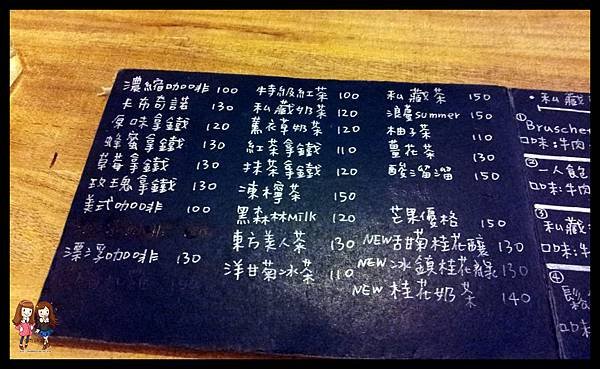 濃縮咖啡 100
卡布奇諾 130
原味拿鐵 120
蜂蜜拿鐵 130
草莓拿鐵 130
玫瑰拿鐵 130
美式咖啡 100
漂浮咖啡 130
特級紅茶 100
私藏奶茶 120
薰衣草奶茶 120
紅茶拿鐵 110
抹茶拿鐵 120
凍檸茶 150
黑森林Milk 120
東方美人茶 130
洋甘菊冰茶 110
私藏茶 150
浪漫summer 150
柚子茶 110
薑花茶 130
酸溜溜 150
芒果優格 150
NEW 甜菊桂花釀 130
NEW 冰鎮桂花綠 130
NEW 桂花奶茶 140
•私藏
①
Brusche
口味:牛肉
②一人食
口味:牛肉
③
私藏
口味:
④
鬆
口味